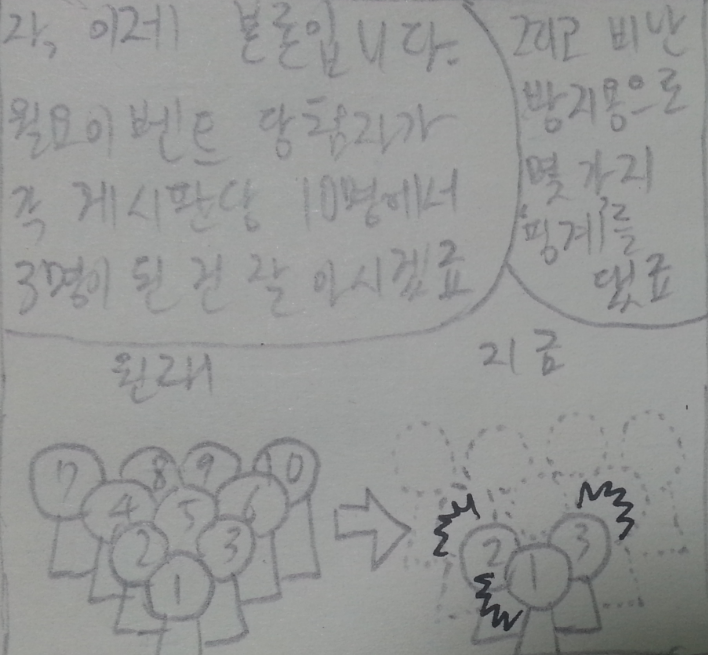 자, 이제 본론입니다.
월요이벤트 당첨자가
각 게시판당 10명에서
3명이 된 건 잘 아시겠죠
그리고 비난
방지용으로
몇 가지
'핑계'를
댔죠
원래
지금
7 8 9 10
4 5 6
2 3
1
2 3
1